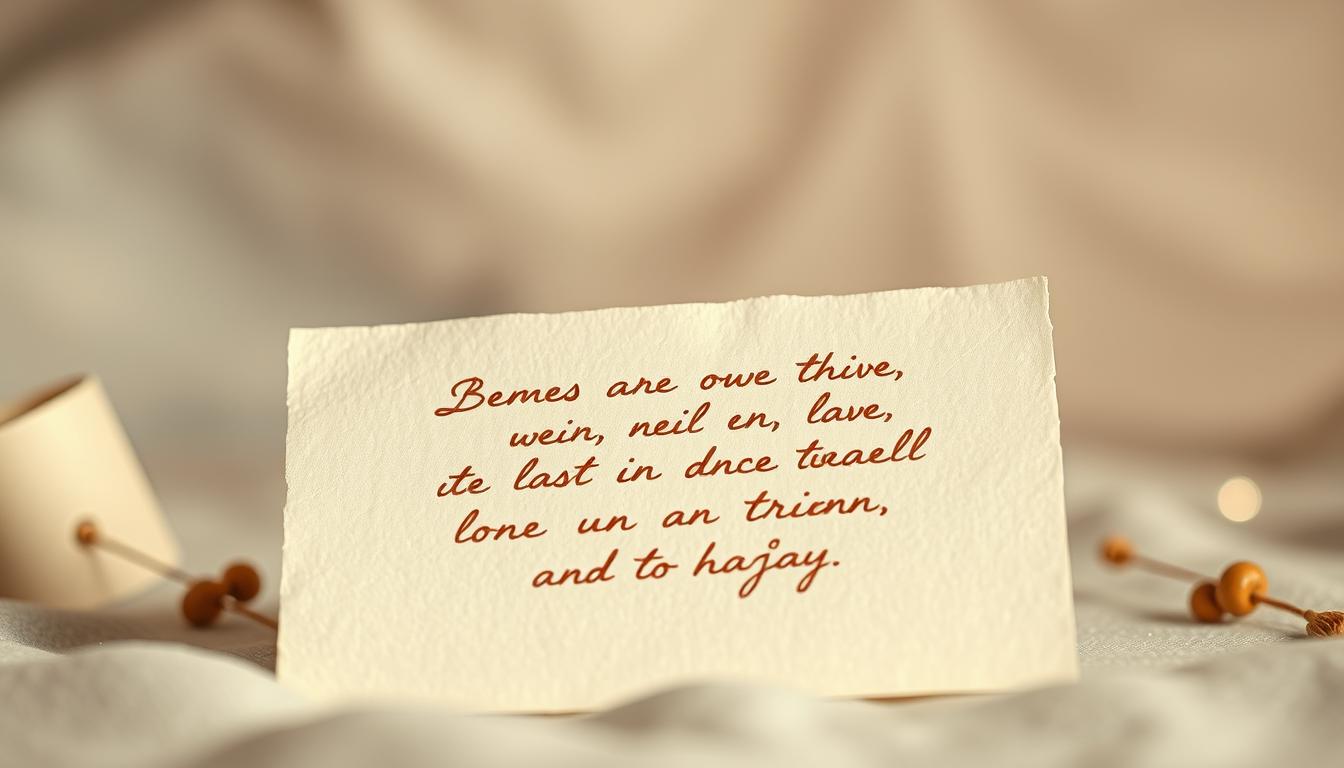 Bemes are owe thive,
wein, neil en, lave,
ite last in dnce
lone un an
and to hajay.